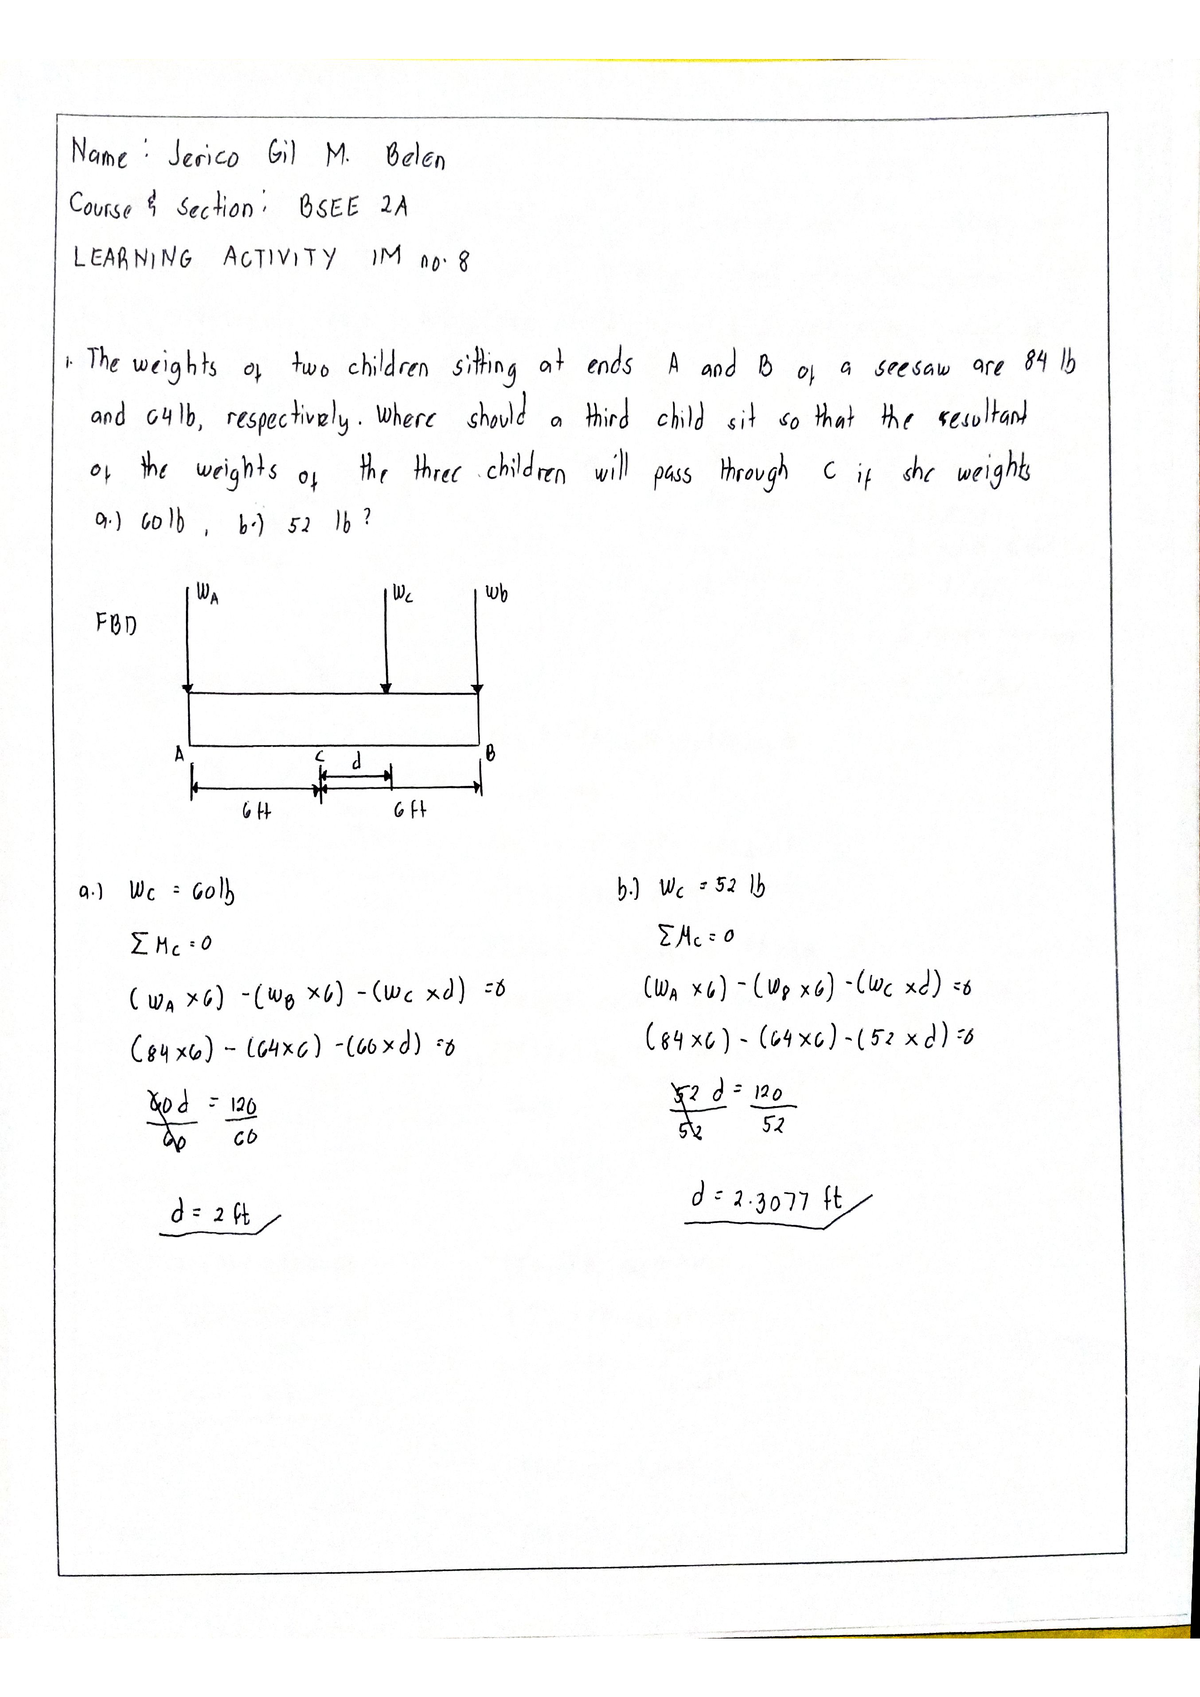 Name : Jerico Gil M. Belen
Course & Section : BSEE 2A
LEARNING ACTIVITY IM no. 8
1. The weights of two children sitting at ends A and B of a seesaw are 84 lb
and 64 lb, respectively. Where should a third child sit so that the resultant
of the weights of the three children will pass through C if she weights
a.) 60 lb , b.) 52 lb ?
WA Wc Wb
FBD
A C d B
6 ft 6 ft
a.) Wc = 60 lb
ΣMc = 0
(WA x6) - (WB x6) - (Wc xd) = 0
(84 x6) - (64x6) - (60 x d) = 0
60 d = 120
60 60
d = 2 ft
b.) Wc = 52 lb
ΣMc = 0
(WA x6) - (WB x6) - (Wc xd) = 0
(84 x6) - (64 x6) - (52 x d) = 0
52 d = 120
52 52
d = 2.3077 ft